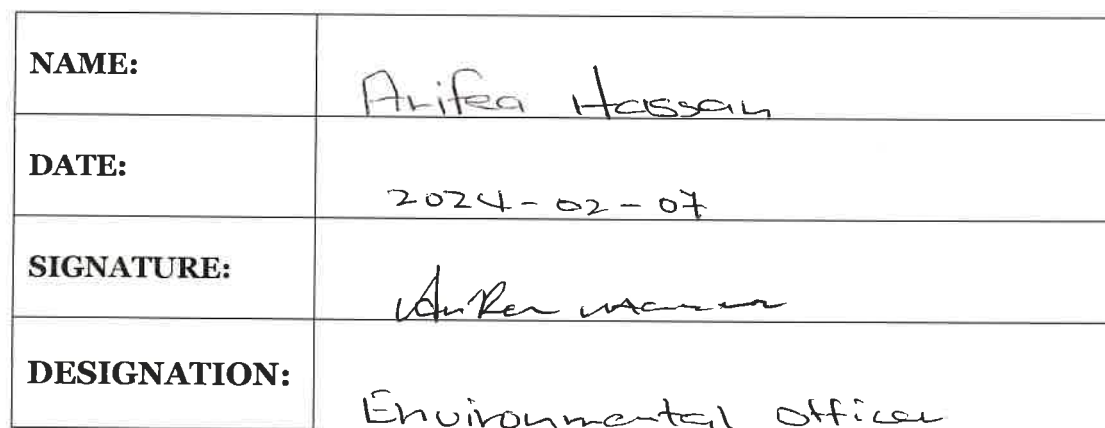 NAME: Arifea Hassan
DATE: 2024-02-07
SIGNATURE:
DESIGNATION: Environmental Officer